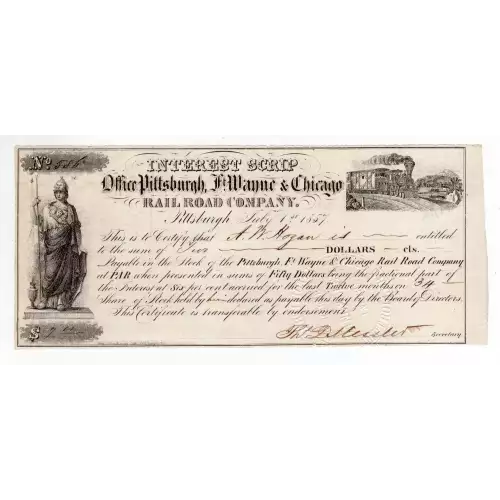 No.
INTEREST SCRIP
Office Pittsburgh, Ft. Wayne & Chicago
RAIL ROAD COMPANY.
Pittsburgh July 1st 1857
This is to Certify that A. W. Hogan is entitled
to the sum of DOLLARS cts.
Payable in the Stock of the Pittsburgh, Ft. Wayne & Chicago Rail Road Company
at PAR when presented in sums of Fifty Dollars being the fractional part of
the Interest at Six per cent accrued for the last Twelve months on 34
Share of Stock held by declared as payable this day by the Board of Directors
This Certificate is transferable by endorsement.
$
Secretary.